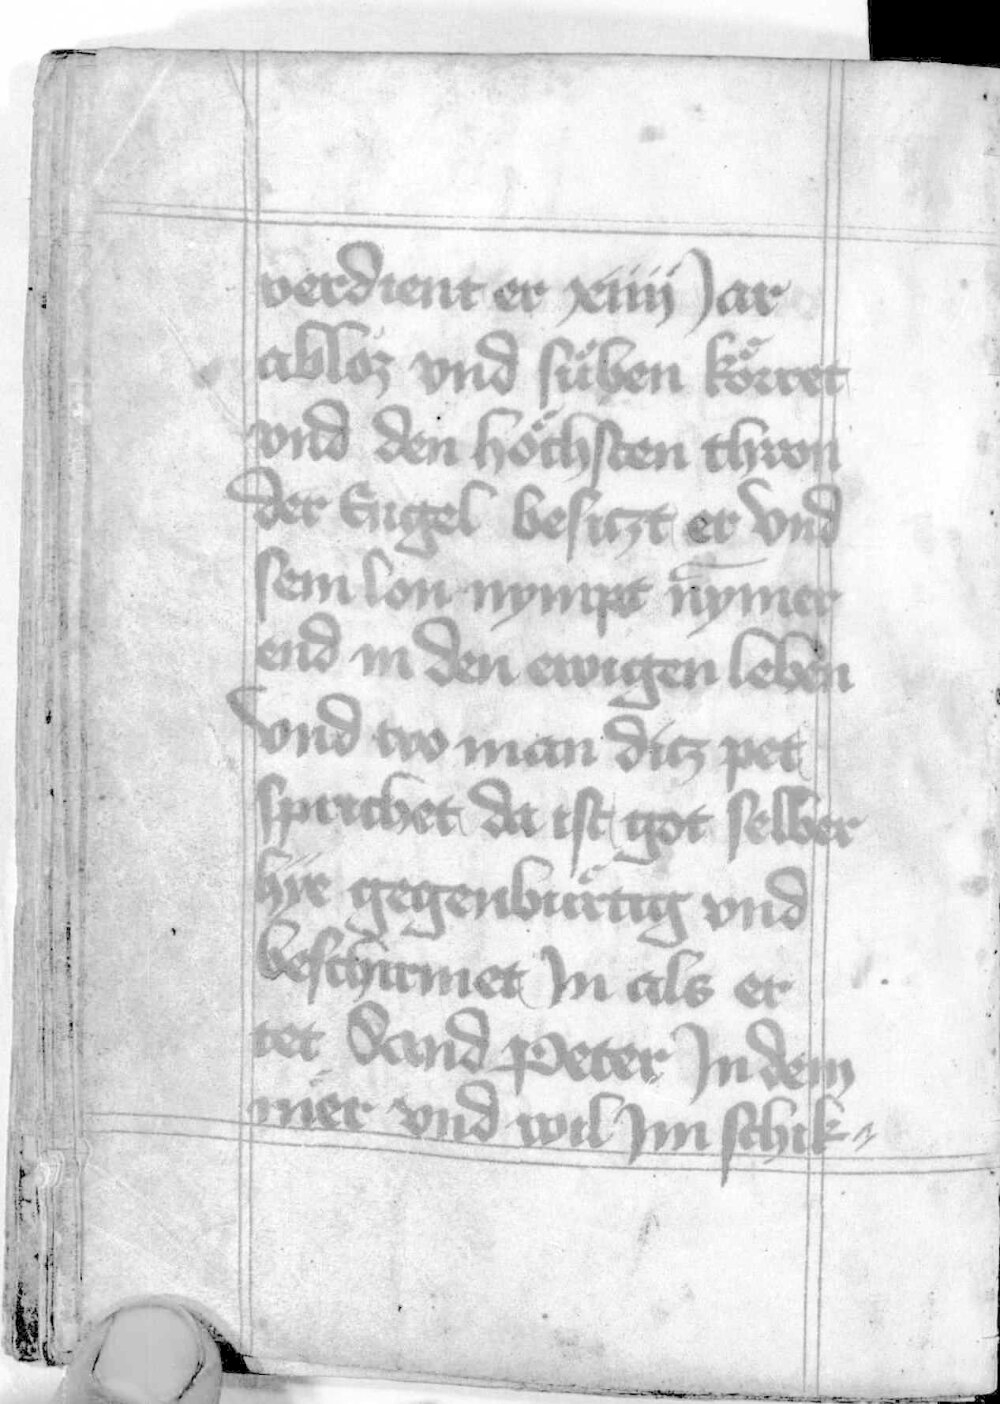 verdient er xiiij Jar
abloz vnd süben körret
vnd den höchsten thron
der Engel besitzt er vnd
sein lon nympt nȳmer
end in den ewigen leben
vnd wo man ditz pet
sprichet da ist got selber
hÿe gegenbürtig vnd
beschirmet In als er
tet Sand Peter In dem
mer vnd wil Im schik-